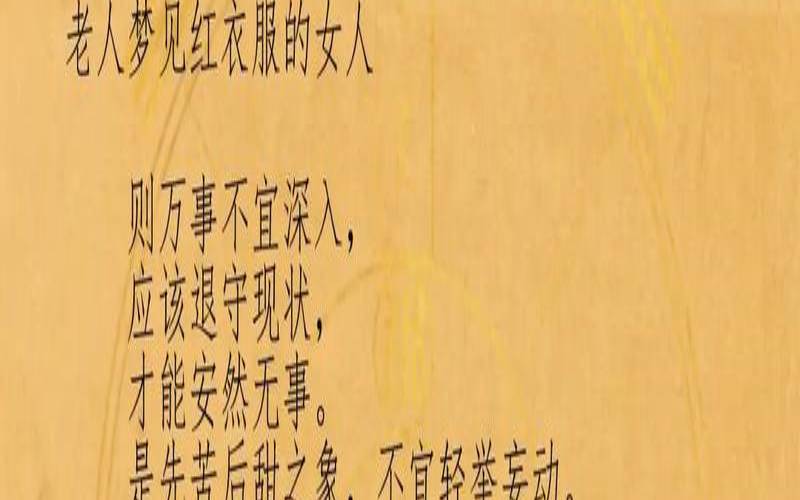 老人梦见红衣服的女人
则万事不宜深入，
应该退守现状，
才能安然无事。
是先苦后甜之象，不宜轻举妄动。